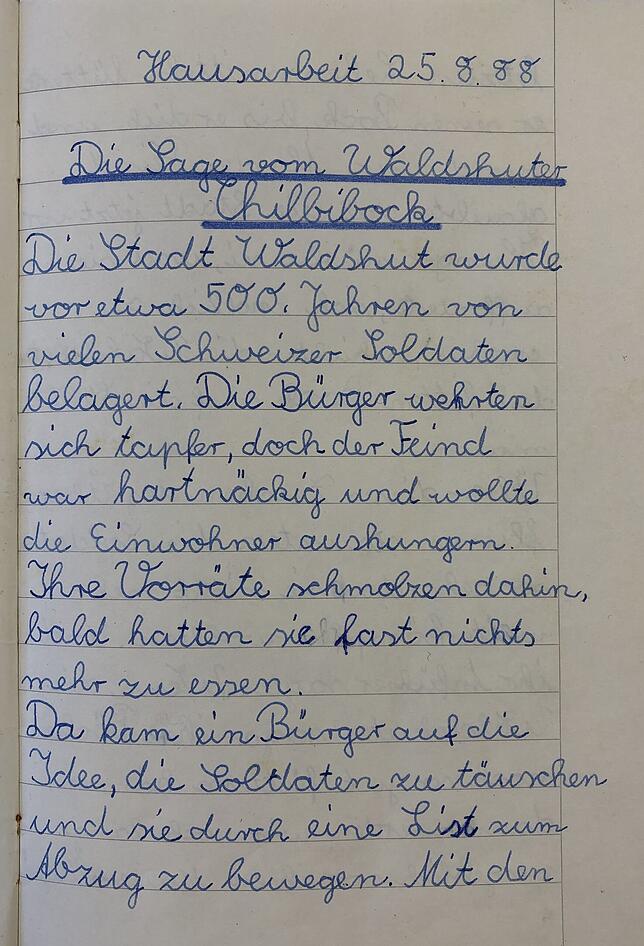 Hausarbeit 25.8.88
Die Sage vom Waldshuter
Chilbibock
Die Stadt Waldshut wurde
vor etwa 500. Jahren von
vielen Schweizer Soldaten
belagert. Die Bürger wehrten
sich tapfer, doch der Feind
war hartnäckig und wollte
die Einwohner aushungern.
Ihre Vorräte schmolzen dahin,
bald hatten sie fast nichts
mehr zu essen.
Da kam ein Bürger auf die
Idee, die Soldaten zu täuschen
und sie durch eine List zum
Abzug zu bewegen. Mit den